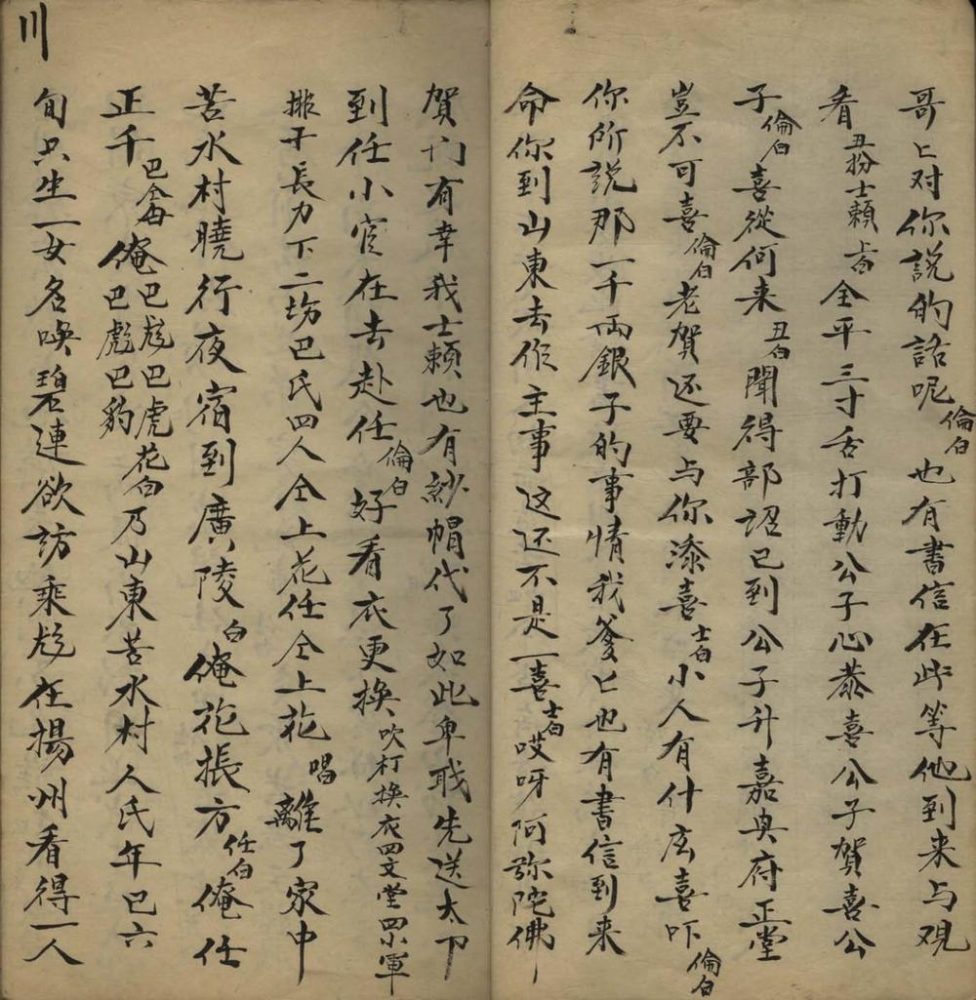 哥匕对你說的話呢倫白也有書信在此等他到来与观
看丑扮士賴上白全平三寸舌打動公子心恭喜公子賀喜公
子倫白喜從何来丑白聞得部詔已到公子升嘉興府正堂
豈不可喜倫白老賀还要与你添喜士白小人有什庅喜吓倫白
你所説那一千両銀子的事情我爹匕也有書信到来
命你到山東去作主事这还不是一喜士白哎呀阿弥陀佛
賀门有幸我士賴也有紗帽代了如此卑職先送太下
到任小官在去赴任倫白好看衣更換吹打換衣四文堂四小軍
排子長力下二塲巴氏四人仝上花任仝上花唱離了家中
苦水村曉行夜宿到廣陵白俺花振方任白俺任
正千巴仝白俺巴龙巴虎巴彪巴豹花白乃山東苦水村人氏年已六
旬只生一女名喚碧連欲訪乘龙在揚州看得一人
川